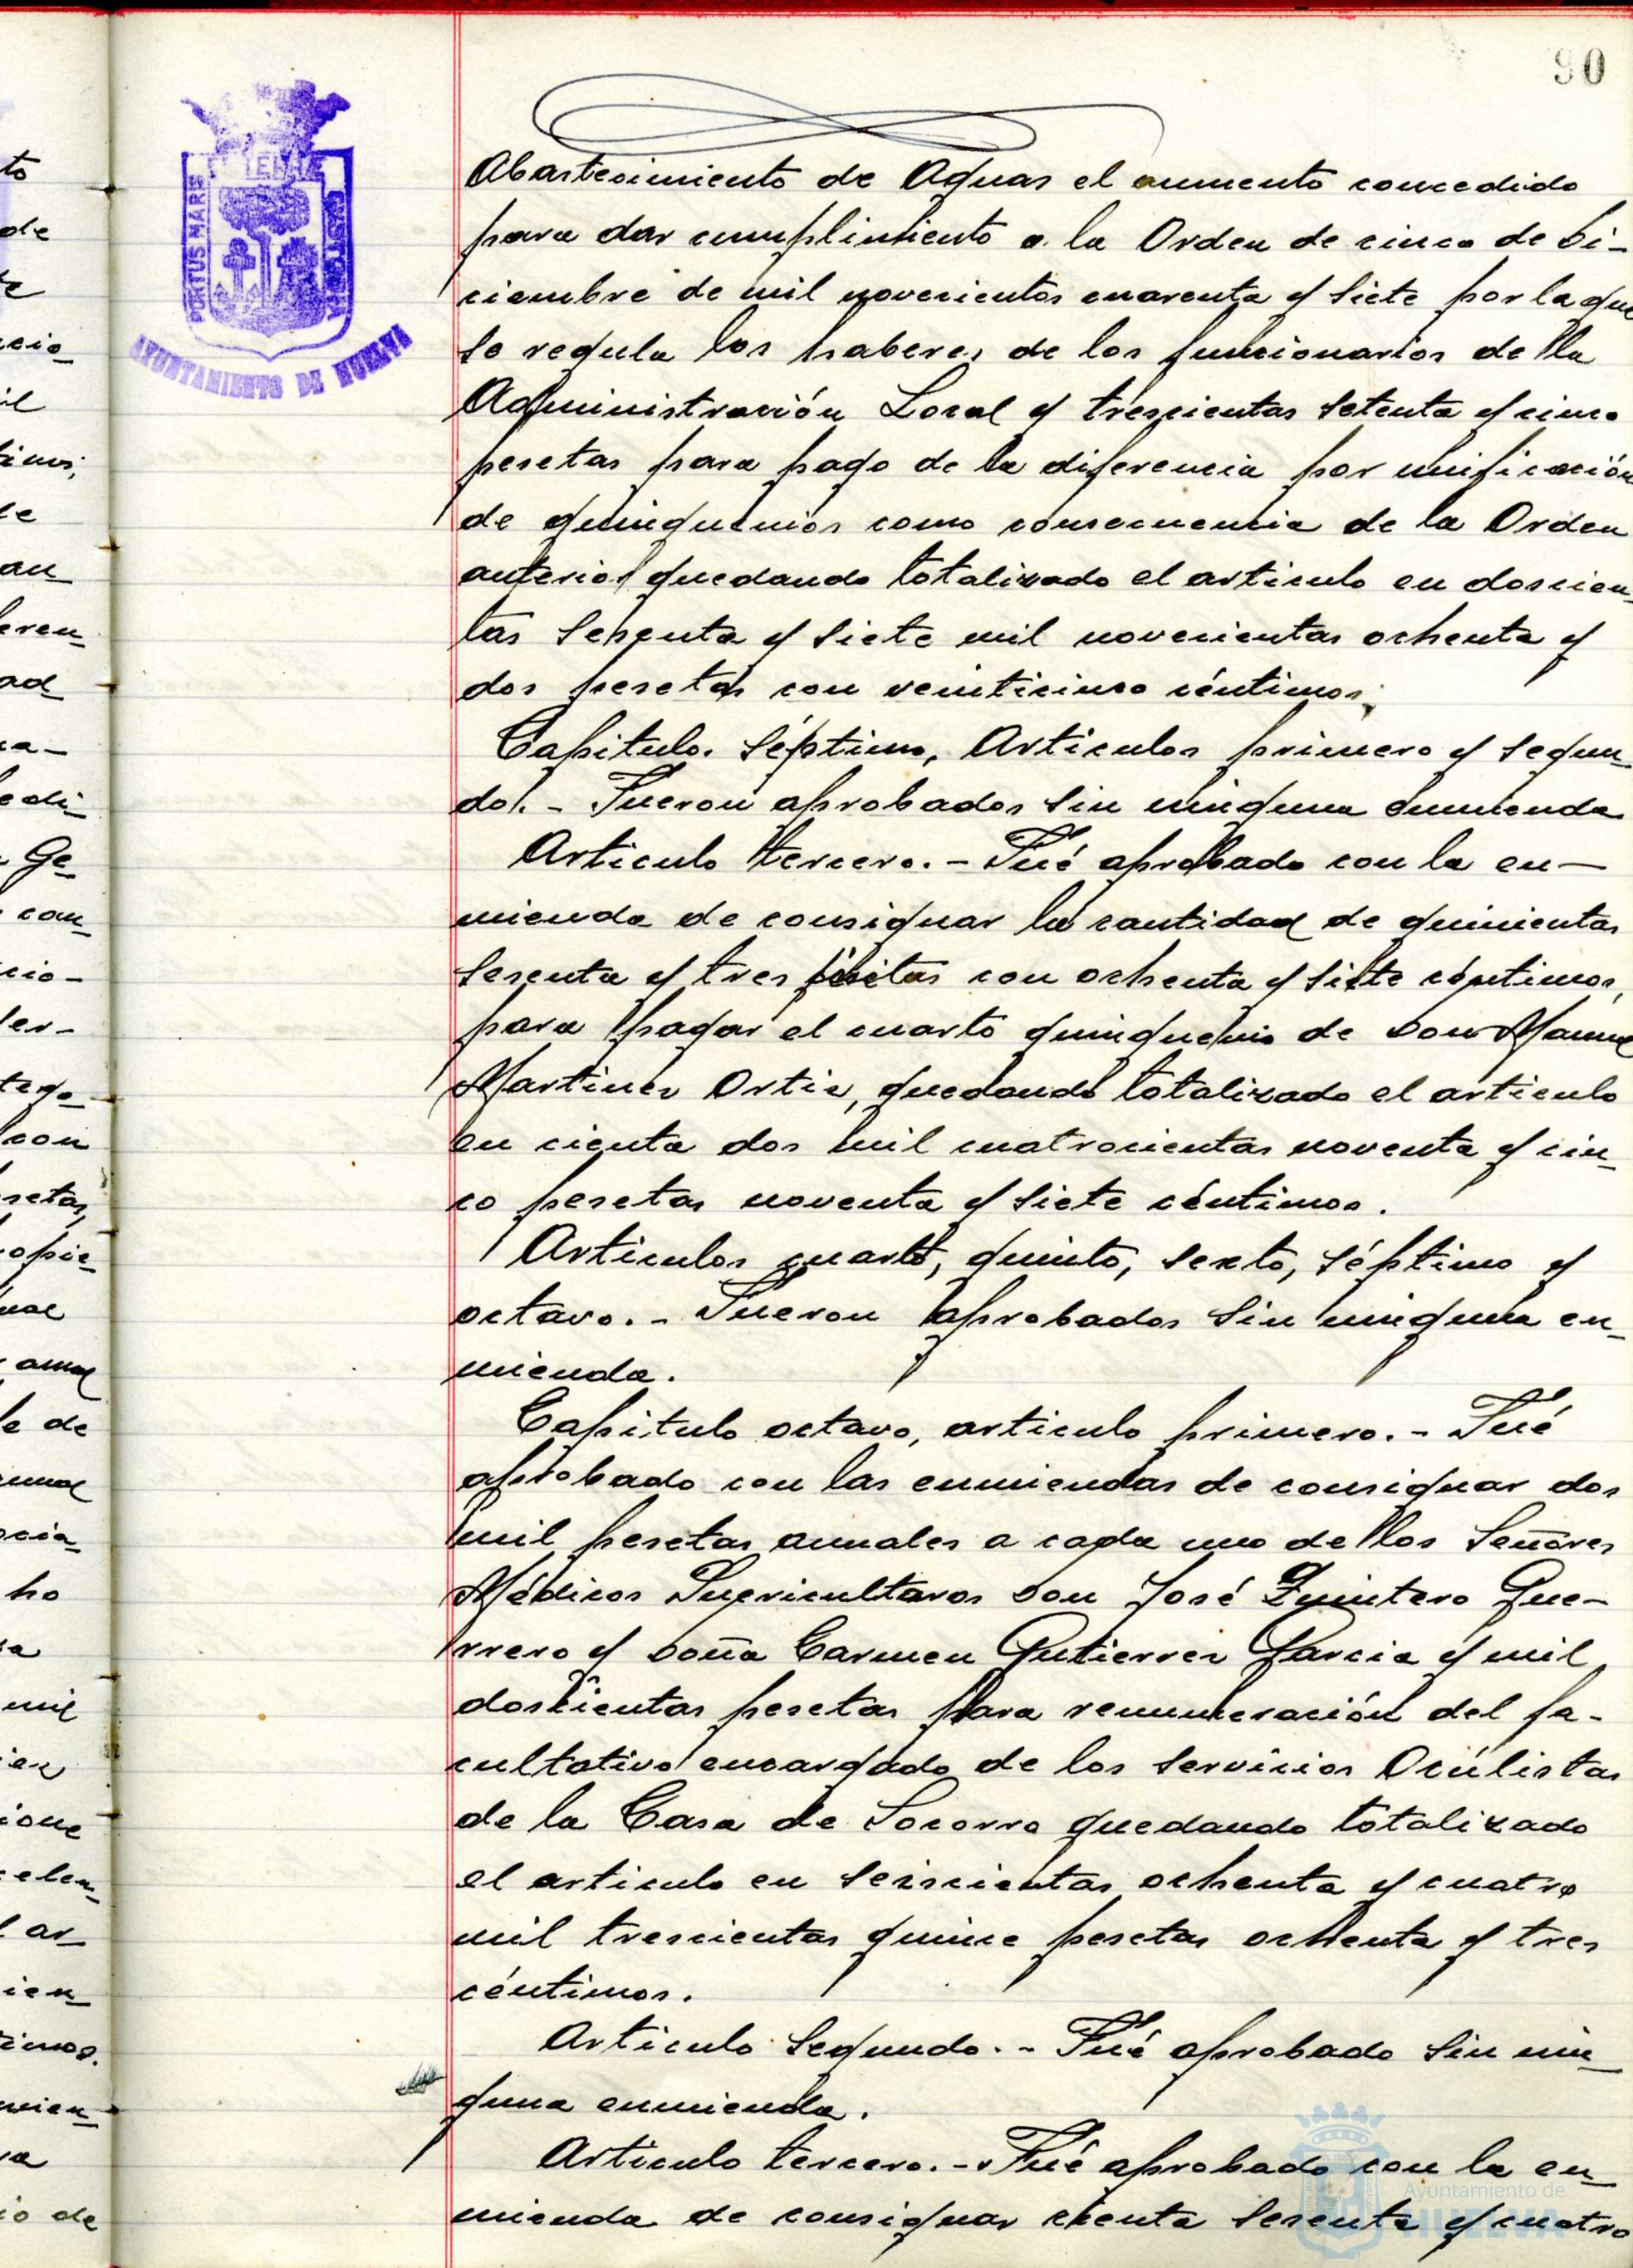 90
PORTUS MARIS
AYUNTAMIENTO DE HUELVA
Abastecimiento de Aguas el aumento concedido
para dar cumplimiento a la Orden de cinco de Di-
ciembre de mil novecientos cuarenta y siete por la que
se regula los haberes de los funcionarios de la
Administración Local y trescientas setenta y cinco
pesetas para pago de la diferencia por unificación
de quinquenios como consecuencia de la Orden
anterior quedando totalizado el articulo en doscien-
tas sesenta y siete mil novecientas ochenta y
dos pesetas con veinticinco céntimos.
Capitulo. Séptimo, Articulos primero y segun-
do. - Fueron aprobados sin ninguna enmienda
Articulo tercero. - Fué aprobado con la en-
mienda de consignar la cantidad de quinientas
sesenta y tres con ochenta y siete céntimos,
para pagar el cuarto quinquenio de Don Manuel
Martinez Ortiz, quedando totalizado el articulo
en cienta dos mil cuatrocientas noventa y cin-
co pesetas noventa y siete céntimos.
Articulos cuarto, quinto, sexto, séptimo y
octavo. - Fueron aprobados sin ninguna en-
mienda.
Capitulo octavo, articulo primero. - Fué
aprobado con las enmiendas de consignar dos
mil pesetas anuales a cada uno de los Señores
Médicos Puericultores Don José Quintero Gue-
rrero y Doña Carmen Gutierrez Garcia y mil
doscientas pesetas para remuneración del fa-
cultativo encargado de los servicios Oculistas
de la Casa de Socorro quedando totalizado
el articulo en seiscientas ochenta y cuatro
mil trescientas quince pesetas ochenta y tres
céntimos.
Articulo segundo. - Fué aprobado sin nin-
guna enmienda.
Articulo tercero. - Fué aprobado con la en-
mienda de consignar cienta sesenta y cuatro
Ayuntamiento de
HUELVA